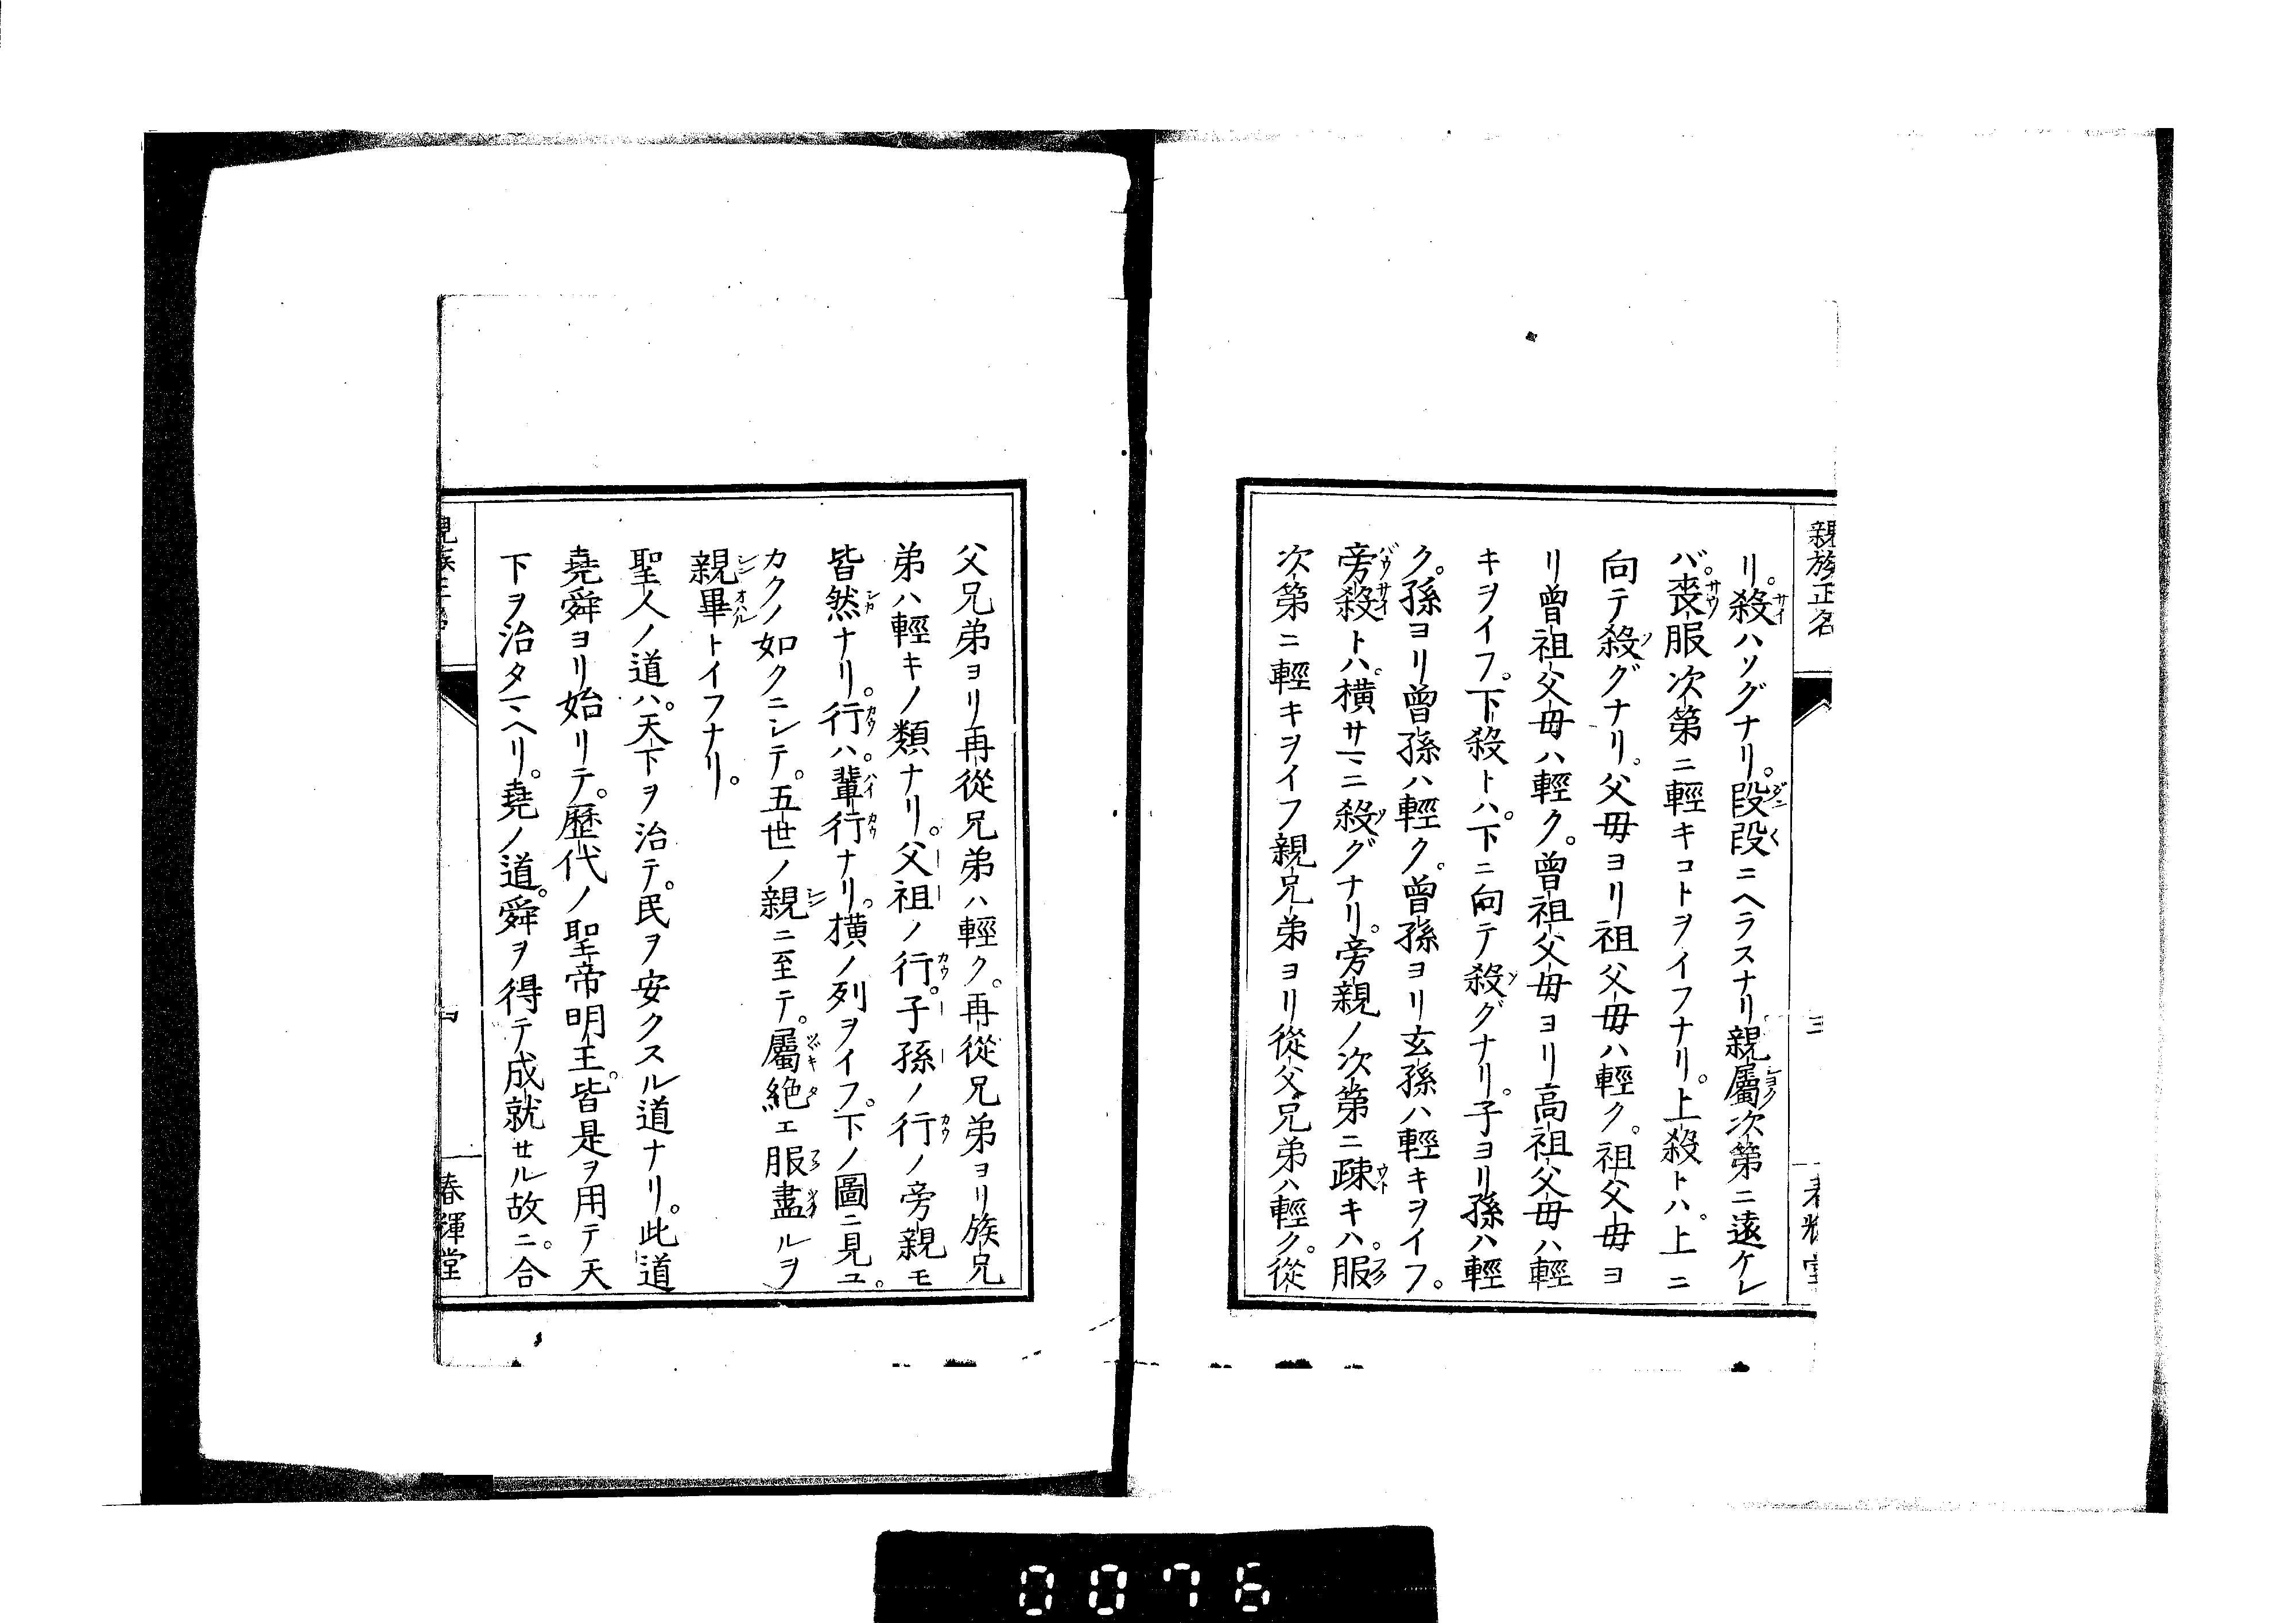 親族正名
三
リ。殺ハソグナリ。段段ニヘラスナリ親屬次第ニ遠ケレ
バ。喪服次第ニ輕キコトヲイフナリ。上殺トハ。上ニ
向テ殺グナリ。父母ヨリ祖父母ハ輕ク。祖父母ヨ
リ曾祖父母ハ輕ク。曾祖父母ヨリ高祖父母ハ輕
キヲイフ。下殺トハ。下ニ向テ殺グナリ。子ヨリ孫ハ輕
ク。孫ヨリ曾孫ハ輕ク。曾孫ヨリ玄孫ハ輕キヲイフ。
旁殺トハ。横サマニ殺グナリ。旁親ノ次第ニ疎キハ。服
次第ニ輕キヲイフ親兄弟ヨリ從父兄弟ハ輕ク。從
父兄弟ヨリ再從兄弟ハ輕ク。再從兄弟ヨリ族兄
弟ハ輕キノ類ナリ。父祖ノ行。子孫ノ行ノ旁親モ
皆然ナリ。行ハ。輩行ナリ。横ノ列ヲイフ。下ノ圖ニ見ユ。
カクノ如クニシテ。五世ノ親ニ至テ。屬絶エ服盡ルヲ
親畢トイフナリ。
聖人ノ道ハ。天下ヲ治テ。民ヲ安クスル道ナリ。此道
堯舜ヨリ始リテ。歴代ノ聖帝明王。皆是ヲ用テ天
下ヲ治タマヘリ。堯ノ道。舜ヲ得テ成就セル故ニ。合
春輝堂
0076